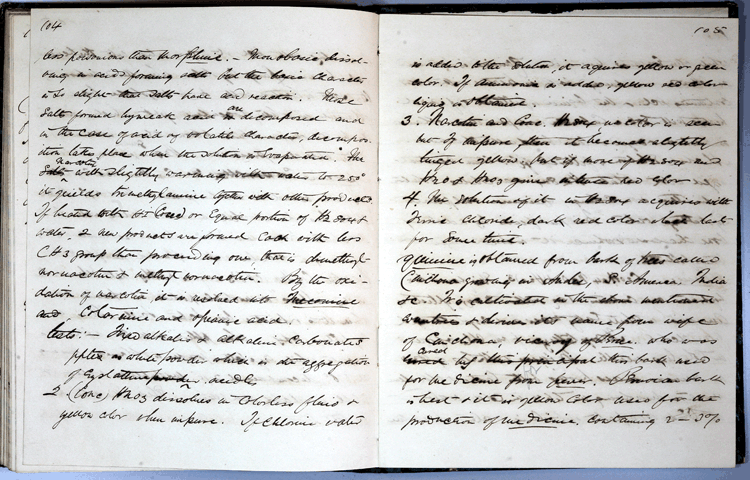 104
less poisonous than morphine. - Monobasic, dissol-
ving in acid forming salts but the basic character
is so slight that salts have acid reaction. These
Salts formed by weak acid are decomposed and
in the case of acid of volatile character, decomposi-
tion takes place when the solution is evaporated. The
narcotin with slightly warming with water to 250°
it yields trimethylamine together with other products
If heated with HI (conc) or equal portion of H2SO4 &
water, 2 new products are formed each with less
CH3 group than preceeding one that is dimethyl-
nornarcotin & methyl nornarcotin. By the oxi-
dation of narcotin it is resolved into
and Cotarnine and opianic acid.
tests: - Fixed alkalies & alkaline Carbonates
pptes a white powder which is the aggregation
of needle
2 (Conc) HNO3 dissolves in Colorless fluid &
yellow color when impure. If chlorine water
105
is added to the solution, it acquires yellow or green
color. If ammonia is added, yellow red color
liquid is obtained.
3. Narcotin and Conc. H2SO4 no color is seen
but if impure then it becomes slightly
tinged yellow, but if more of H2SO4 and
HNO3 gives intense red color
4. The solution of it in H2SO4 acquires with
Ferric chloride, dark red color which last
for some time.
Quinine is obtained from bark of trees called
Cinchona growing in S. America India
&c. It is cultivated in the above mentioned
countries & derives its name from wife
of Cinchona, viceroy of Peru. who was
cured by this bark used
for medicine from fever. Peruvian bark
is best & it is yellow color uses for the
production of medicine. Containing 2 - 3%